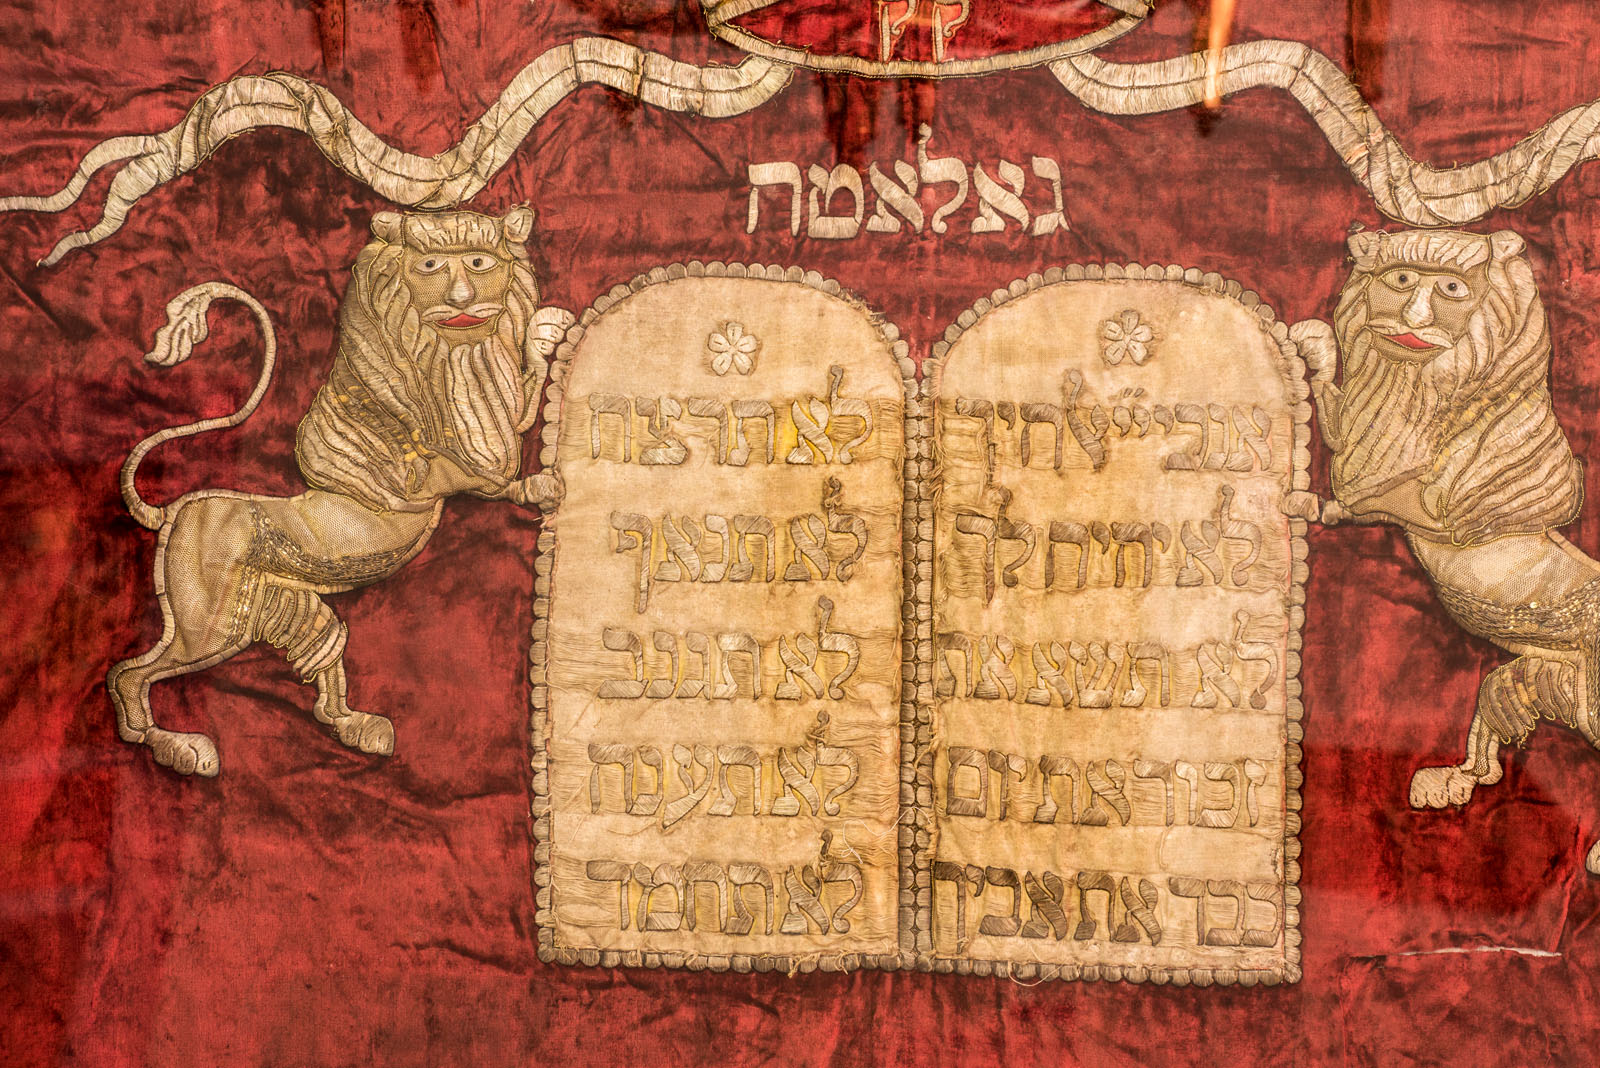 ק ק
גאלאמה
אנכי ייי אלהיך
לא יהיה לך
לא תשא את
זכור את יום
כבד את אביך
לא תרצח
לא תנאף
לא תגנב
לא תענה
לא תחמד